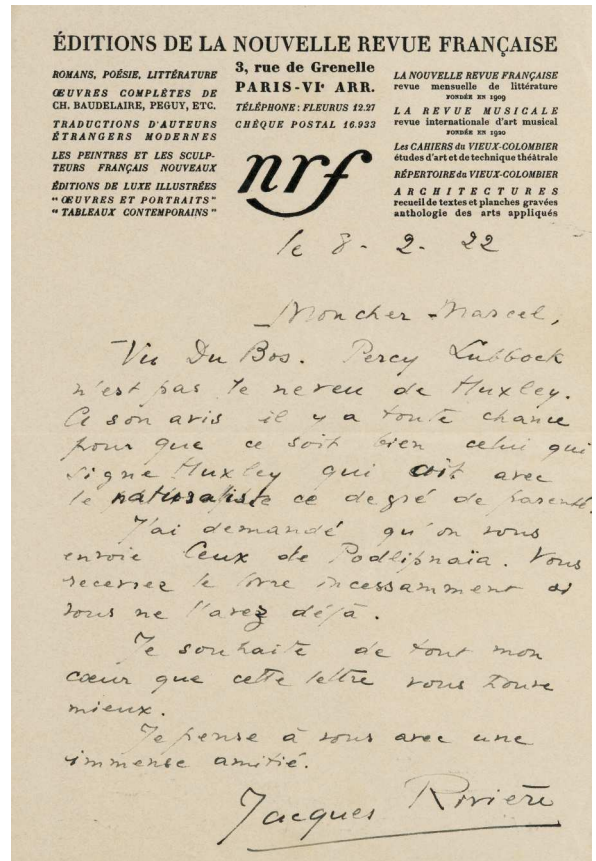 ÉDITIONS DE LA NOUVELLE REVUE FRANÇAISE
ROMANS, POÉSIE, LITTÉRATURE
ŒUVRES COMPLÈTES DE
CH. BAUDELAIRE, PEGUY, ETC.
TRADUCTIONS D'AUTEURS
ÉTRANGERS MODERNES
LES PEINTRES ET LES SCULP-
TEURS FRANÇAIS NOUVEAUX
ÉDITIONS DE LUXE ILLUSTRÉES
"ŒUVRES ET PORTRAITS"
"TABLEAUX CONTEMPORAINS"
3, rue de Grenelle
PARIS-VIe ARR.
TÉLÉPHONE : FLEURUS 12.27
CHÈQUE POSTAL 16.933
nrf
LA NOUVELLE REVUE FRANÇAISE
revue mensuelle de littérature
FONDÉE EN 1909
LA REVUE MUSICALE
revue internationale d'art musical
FONDÉE EN 1920
Les CAHIERS du VIEUX-COLOMBIER
études d'art et de technique théâtrale
RÉPERTOIRE du VIEUX-COLOMBIER
ARCHITECTURES
recueil de textes et planches gravées
anthologie des arts appliqués
le 8. 2. 22
Mon cher Marcel,
Vu Du Bos. Percy Lubbock
n'est pas le neveu de Huxley.
A son avis il y a toute chance
pour que ce soit bien celui qui
signe Huxley qui ait avec
le naturaliste ce degré de parenté.
J'ai demandé qu'on vous
envoie Ceux de Podlipnaïa. Vous
recevrez le livre incessamment si
vous ne l'avez déjà.
Je souhaite de tout mon
cœur que cette lettre vous trouve
mieux.
Je pense à vous avec une
immense amitié.
Jacques Rivière